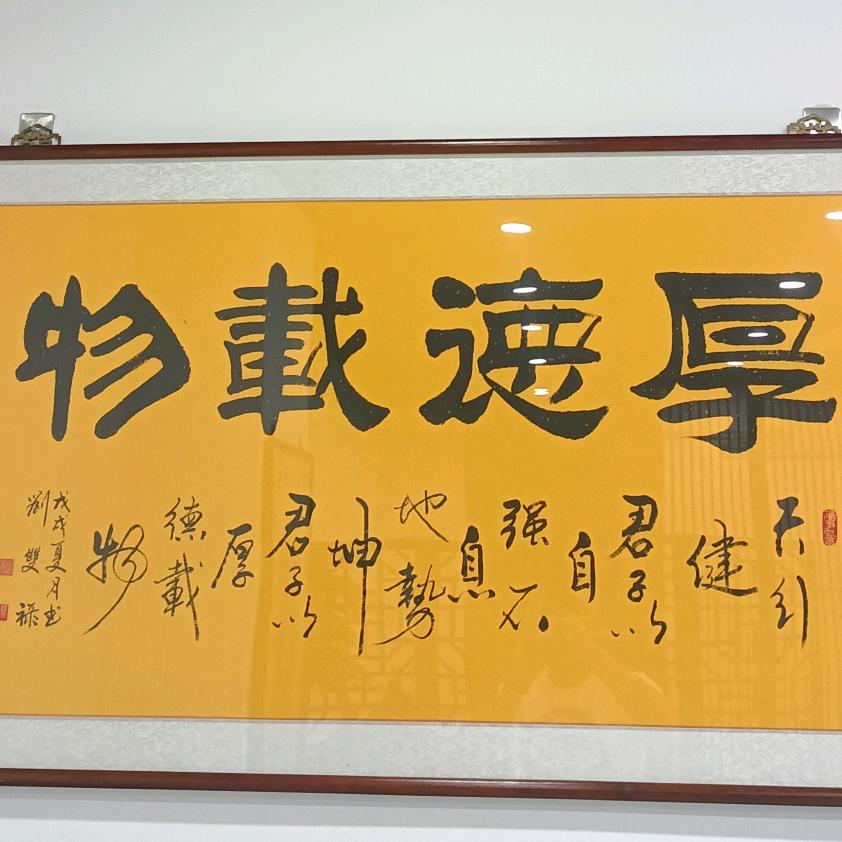 厚德載物
天行
健
君子以
自
强不
息
地勢
坤
君子以
厚
德載
物
戊戌夏月书
劉雙禄